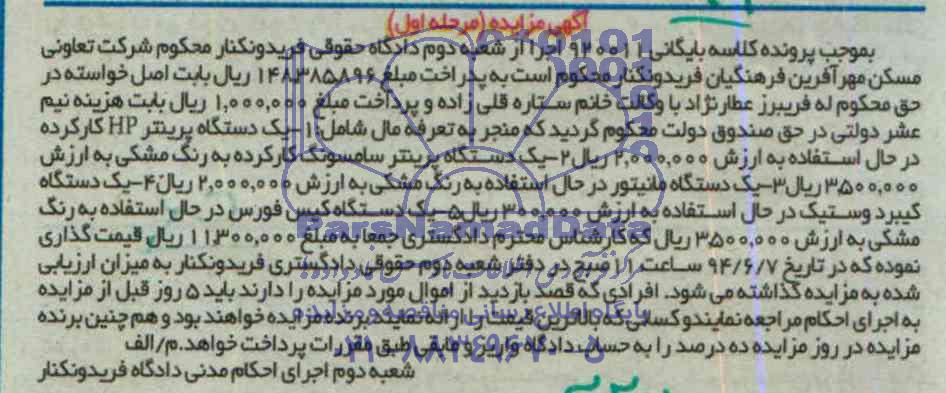 آگهی مزایده (مرحله اول)
بموجب پرونده کلاسه بایگانی ۹۲۰۰۱۱ اجرا از شعبه دوم دادگاه حقوقی فریدونکنار محکوم شرکت تعاونی
مسکن مهر آفرین فرهنگیان فریدونکنار محکوم است به پدراخت مبلغ ۱۴۸,۳۸۵,۸۹۶ ریال بابت اصل خواسته در
حق محکوم له فریبرز عطارنژاد با وکالت خانم ستاره قلی زاده و پرداخت مبلغ ۱,۰۰۰,۰۰۰ ریال بابت هزینه نیم
عشر دولتی در حق صندوق دولت محکوم گردید که منجر به تعرفه مال شامل: ۱-یک دستگاه پرینتر HP کارکرده
در حال استفاده به ارزش ۲,۰۰۰,۰۰۰ ریال ۲-یک دستگاه پرینتر سامسونگ کارکرده به رنگ مشکی به ارزش
۳,۵۰۰,۰۰۰ ریال ۳-یک دستگاه مانیتور در حال استفاده به رنگ مشکی به ارزش ۲,۰۰۰,۰۰۰ ریال ۴-یک دستگاه
کیبرد وستیک در حال استفاده به ارزش ۳۰۰,۰۰۰ ریال ۵-یک دستگاه کیس فورس در حال استفاده به رنگ
مشکی به ارزش ۳,۵۰۰,۰۰۰ ریال که کارشناس محترم دادگستری جمعا به مبلغ ۱۱,۳۰۰,۰۰۰ ریال قیمت گذاری
نموده که در تاریخ ۹۴/۶/۷ ساعت ۱۱ صبح در دفتر شعبه دوم حقوقی دادگستری فریدونکنار به میزان ارزیابی
شده به مزایده گذاشته می شود. افرادی که قصد بازدید از اموال مورد مزایده را دارند باید ۵ روز قبل از مزایده
به اجرای احکام مراجعه نمایند و کسانی که بالاترین قیمت را ارائه نمایند برنده مزایده خواهند بود و هم چنین برنده
مزایده در روز مزایده ده درصد را به حساب دادگاه واریز و مابقی طبق مقررات پرداخت خواهد. م/الف
شعبه دوم اجرای احکام مدنی دادگاه فریدونکنار
ParsNamadData
پایگاه اطلاع رسانی مناقصه و مزایده
۰۲۱-۸۸۳۴۹۶۷۰-۵